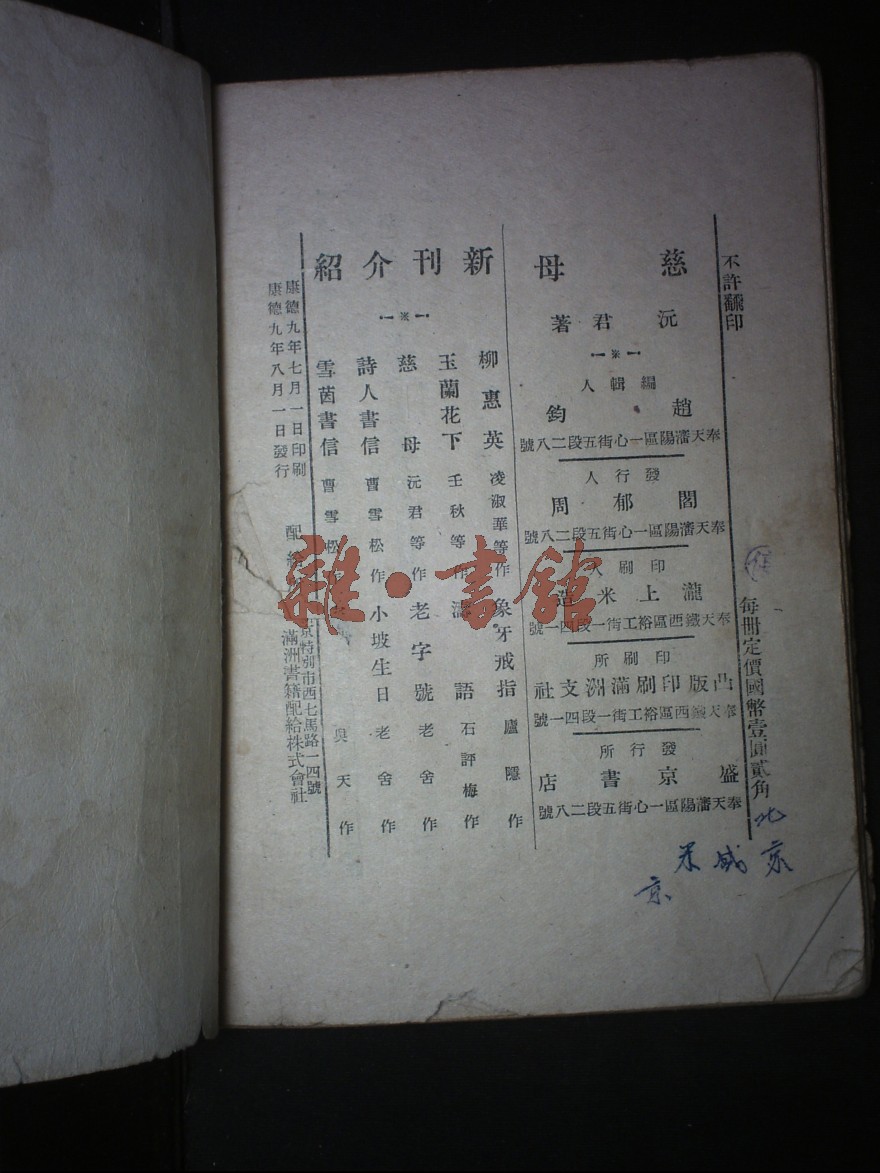 不許翻印
每冊定價國幣壹圓貳角
慈母
沅君著
編輯人
趙鈞
奉天瀋陽區一心街五段二八號
發行人
閻郁周
奉天瀋陽區一心街五段二八號
印刷人
瀧上米造
奉天鐵西區裕工街一段四一號
印刷所
凸版印刷滿洲支社
奉天鐵西區裕工街一段四一號
發行所
盛京書店
奉天瀋陽區一心街五段二八號
新刊介紹
柳惠英 凌淑華等作 象牙戒指 廬隱作
玉蘭花下 壬秋等作 濤語 石評梅作
慈母 沅君等作 老字號 老舍作
詩人書信 曹雪松作 小坡生日 老舍作
雪茵書信 曹雪松 吳天作
康德九年七月一日印刷
康德九年八月一日發行
配給 京特別市西七馬路一四號
滿洲書籍配給株式會社
雜·書館
北京
京